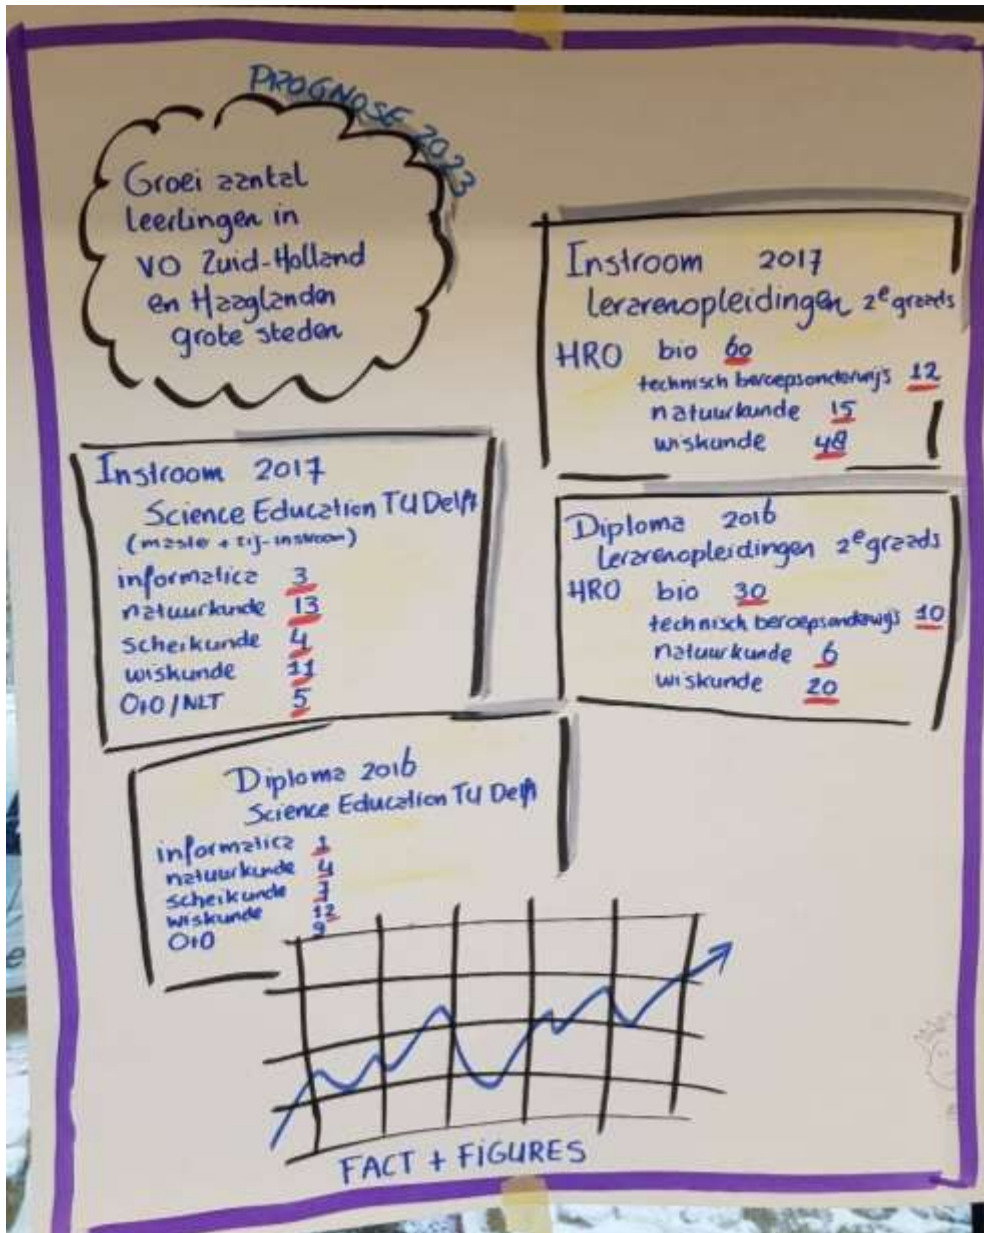 PROGNOSE 2023
Groei aantal
leerlingen in
VO Zuid-Holland
en Haaglanden
grote steden
Instroom 2017
lerarenopleidingen 2e graads
HRO bio 60
technisch beroepsonderwijs 12
natuurkunde 15
wiskunde 48
Instroom 2017
Science Education TU Delft
(master + zij-instroom)
informatica 3
natuurkunde 13
scheikunde 4
wiskunde 11
O+O/NLT 5
Diploma 2016
Lerarenopleidingen 2e graads
HRO bio 30
technisch beroepsonderwijs 10
natuurkunde 6
wiskunde 20
Diploma 2016
Science Education TU Delft
informatica 1
natuurkunde 4
scheikunde 7
wiskunde 12
O+O 9
FACT + FIGURES